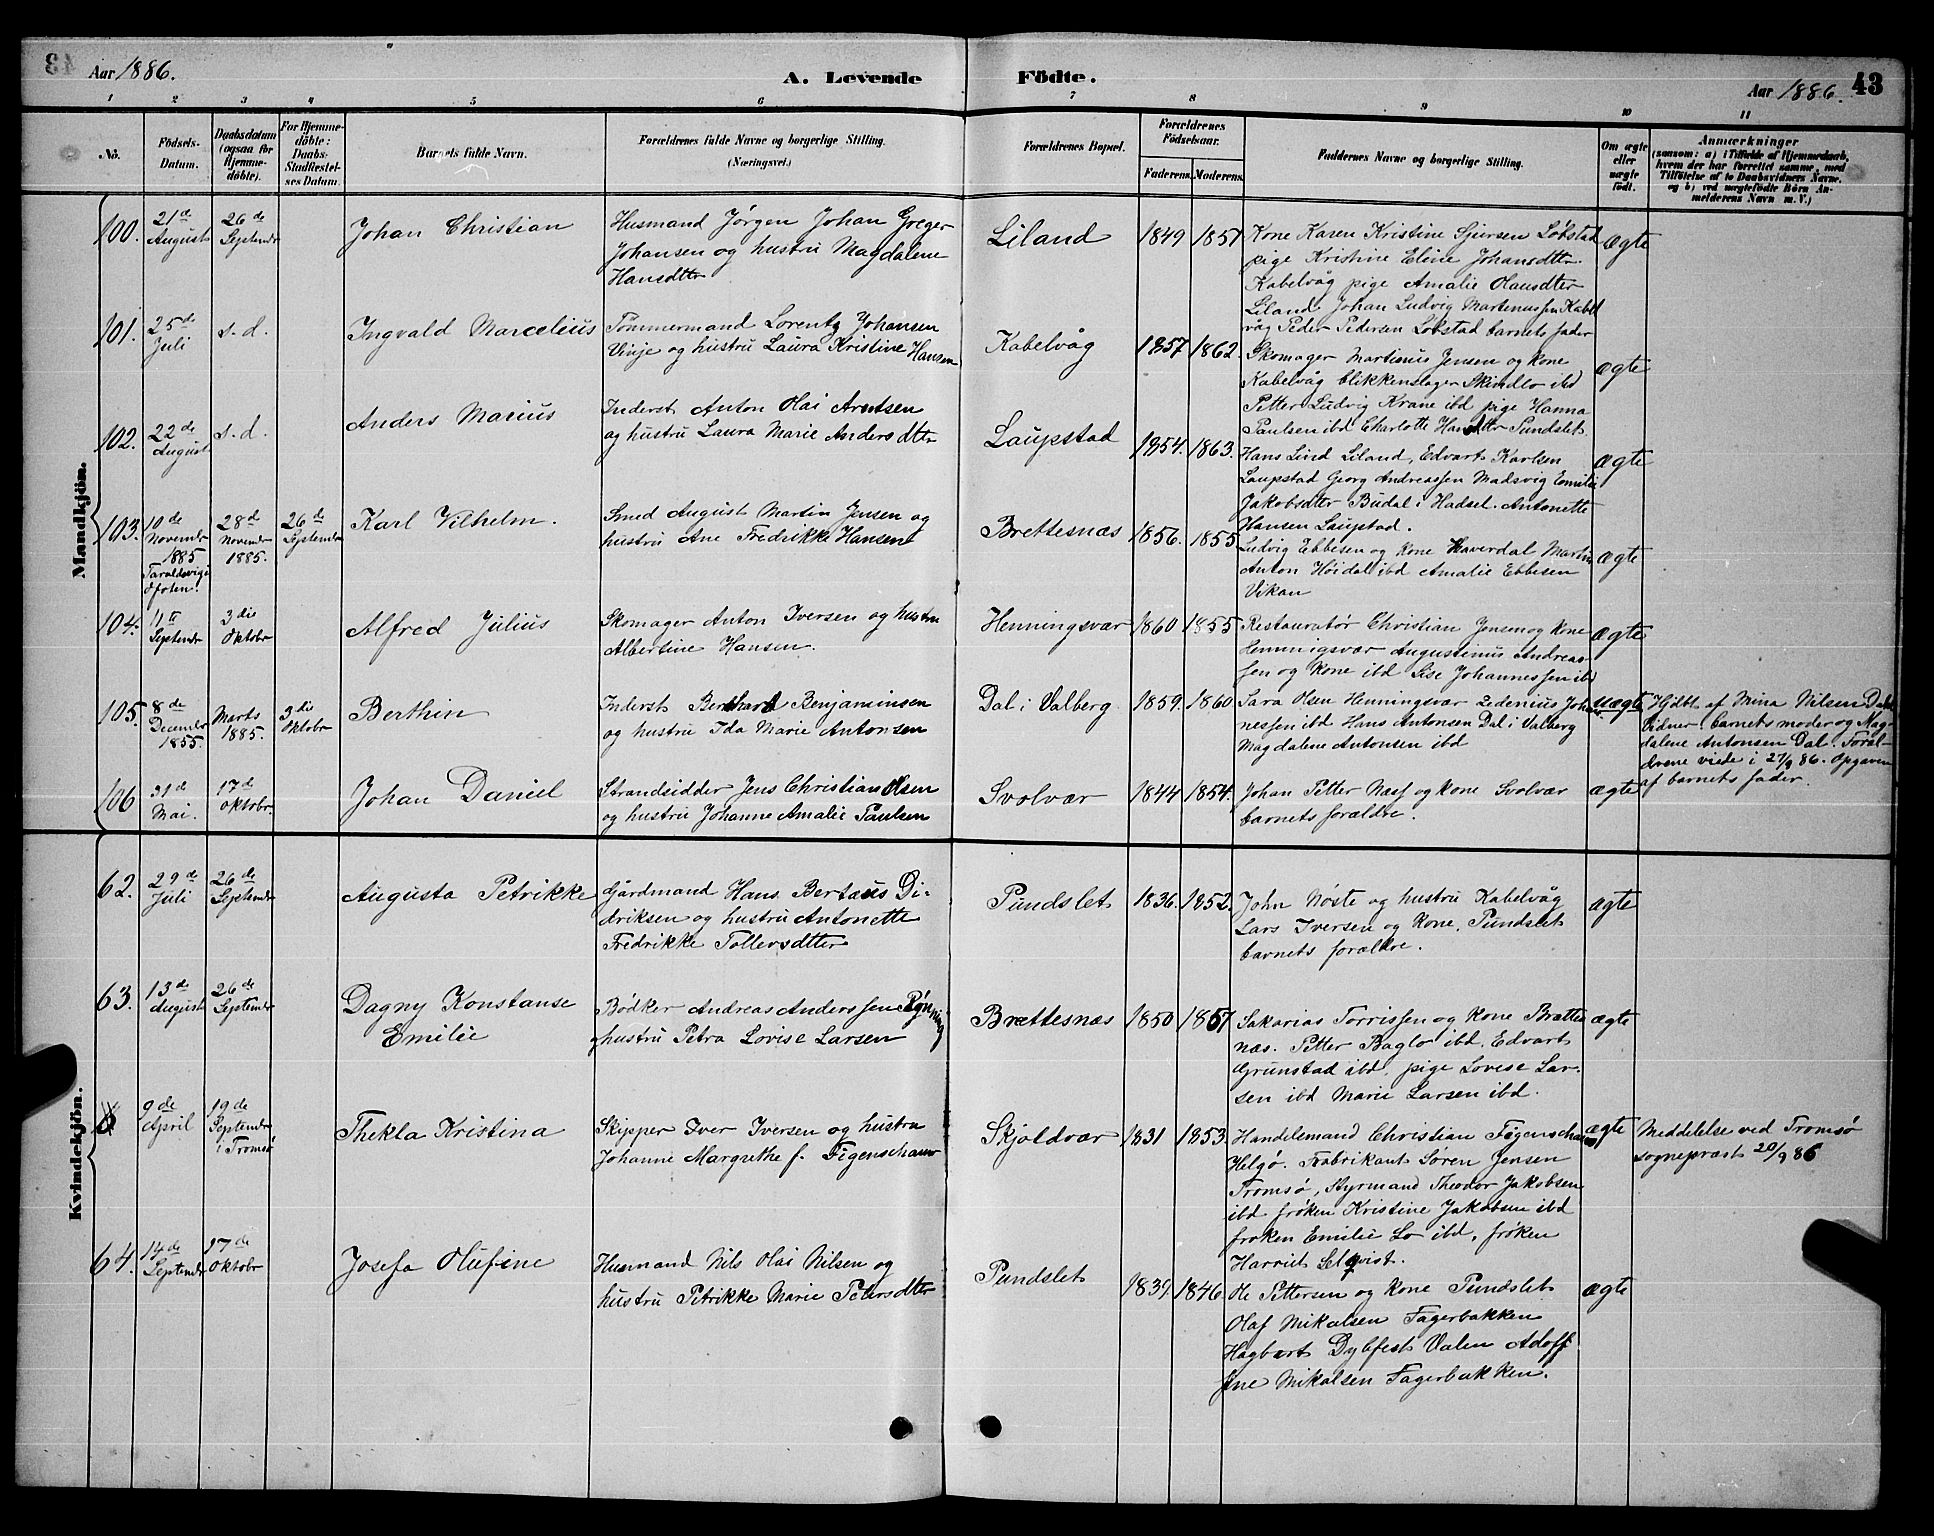 43
Aar 1886.
A. Levende Födte.
Aar 1886.
43
1 2 3 4 5 6 7 8 9 10 11
No.
Födsels-
Datum.
Daabsdatum
(ogsaa for
Hjemme-
döbte).
For Hjemme-
döbte:
Daabs-
Stadfæstel-
ses Datum.
Barnets fulde Navn.
Forældrenes fulde Navne og borgerlige Stilling.
(Næringsvei.)
Forældrenes Bopæl.
Forældrenes
Födselsaar.
Faderens. Moderens.
Faddernes Navne og borgerlige Stilling.
Om ægte
eller
uægte
födt.
Anmærkninger
(saasom: a) i Tilfælde af Hjemmedaab,
hvem der har forrettet samme, med
Tilföielse af to Daabsvidners Navne,
og b) ved uægtefödte Börn An-
melderens Navn m. V.)
Mandkjön.
100.
21de
August
26de
Septembr
Johan Christian
Husmand Jørgen Johan Greger
Johansen og hustru Magdalene
Hansdtr
Liland
1849
1851
Kone Karen Kristine Sjursen Løkstad
pige Kristine Eline Johansdtr
Kabelvåg pige Amalie Hansdtr
Liland. Johan Ludvig Martenussen Kabel
våg Peder Pedersen Løkstad barnets fader
Ægte
101.
25de
Juli
s. d.
Ingvald Marcelius
Tømmermand Lorentz Johansen
Vinje og hustru Laura Kristine Hansen
Kabelvåg
1857
1862
Skomager Martinus Jensen og kone
Kabelvåg blikkenslager Skindlo ibd
Petter Ludvig Krane ibd pige Hanna
Paulsen ibd Charlotte Hansdtr Pundslet.
ægte
102.
22de
August
s. d.
Anders Marius
Inderst Anton Olai Arntsen
og hustru Laura Marie Andersdtr
Laupstad
1854.
1863.
Hans Lind Liland, Edvart Karlsen
Laupstad Georg Andreassen Madsvig Emilie
Jakobsdtr Budal i Hadsel. Antonette
Hansen Laupstad.
ægte
103.
10de
Novembr
1885
Taraldsvig i
Ofoten.
28de
Novembr
1885.
26de
Septembr
Karl Vilhelm.
Smed August Martin Jensen og
hustru Ane Fredrikke Hansen
Brettesnæs
1856.
1855
Ludvig Ebbesen og kone Haverdal Martin
Anton Høidal ibd Amalie Ebbesen
Vikan
ægte
104.
11te
Septembr
3die
Oktobr
Alfred Julius
Skomager Anton Iversen og hustru
Albertine Hansen.
Henningsvær
1860
1855
Restauratør Christian Jensen og kone
Henningsvær Augustinus Andreas-
sen og kone ibd Lise Johannessen ibd
ægte
105.
8de
Decembr
1855.
Marts
1885.
3die
Oktobr
Berthin
Inderst Berthard Benjaminsen
og hustru Ida Marie Antonsen
Dal i Valberg
1859.
1860
Sara Olsen Henningsvær Zedenius Johan-
nessen ibd Hans Antonsen Dal i Valberg
Magdalene Antonsen ibd
uægte
Hjdbt af Mina Nilsen Dal
Vidner: barnets moder og Mag-
dalene Antonsen Dal. Foræl-
drene viede i 27/9 86. Opgaven
af barnets fader.
106
31de
Mai.
17de
Oktobr.
Johan Daniel
Strandsidder Jens Christian Olsen
og hustru Johanne Amalie Paulsen
Svolvær
1844
1854.
Johan Petter Næss og kone Svolvær
barnets forældre.
ægte
Kvindekjön.
62.
29de
Juli
26de
Septembr
Augusta Petrikke
Gårdmand Hans Bertæus Di-
driksen og hustru Antonette
Fredrikke Tollevsdtter
Pundslet
1836.
1852.
John Nøste og hustru Kabelvåg
Lars Iversen og kone, Pundslet
barnets forældre.
ægte
63.
13de
August
26de
Septembr
Dagny Konstanse
Emilie
Bødker Andreas Anderssen Rønning
og hustru Petra Lovise Larsen
Brettesnæs
1850
1851
Sakarias Torrissen og kone Brettes
næs. Petter Baglo ibd. Edvart
Grunstad ibd. pige Lovise Lar-
sen ibd Marie Larsen ibd.
ægte
9de
April
19de
Septembr
i Tromsø
Thekla Kristina
Skipper Iver Iversen og hustru
Johanne Margrethe f. Figenschauw
Skjoldvær
1831
1853.
Handelsmand Christian Figenschauw
Helgø. Fabrikant Søren Jensen
Tromsø, Styrmand Theodor Jakobsen
ibd frøken Kristine Jakobsen ibd
frøken Emilie Lo ibd, frøken
Harriet Selqvist.
ægte
Meddelelse ved Tromsø
sogneprest 20/9 86
64.
14de
Septembr
17de
Oktobr
Josefa Olufine
Husmand Nils Olai Nilsen og
hustru Petrikke Marie Pedersdtr
Pundslet
1839.
1846.
Ole Pettersen og kone Pundslet
Olaf Mikalsen Fagerbakken
Hagbart Dybfest Valen Adolf
fine Mikalsen Fagerbakken.
ægte